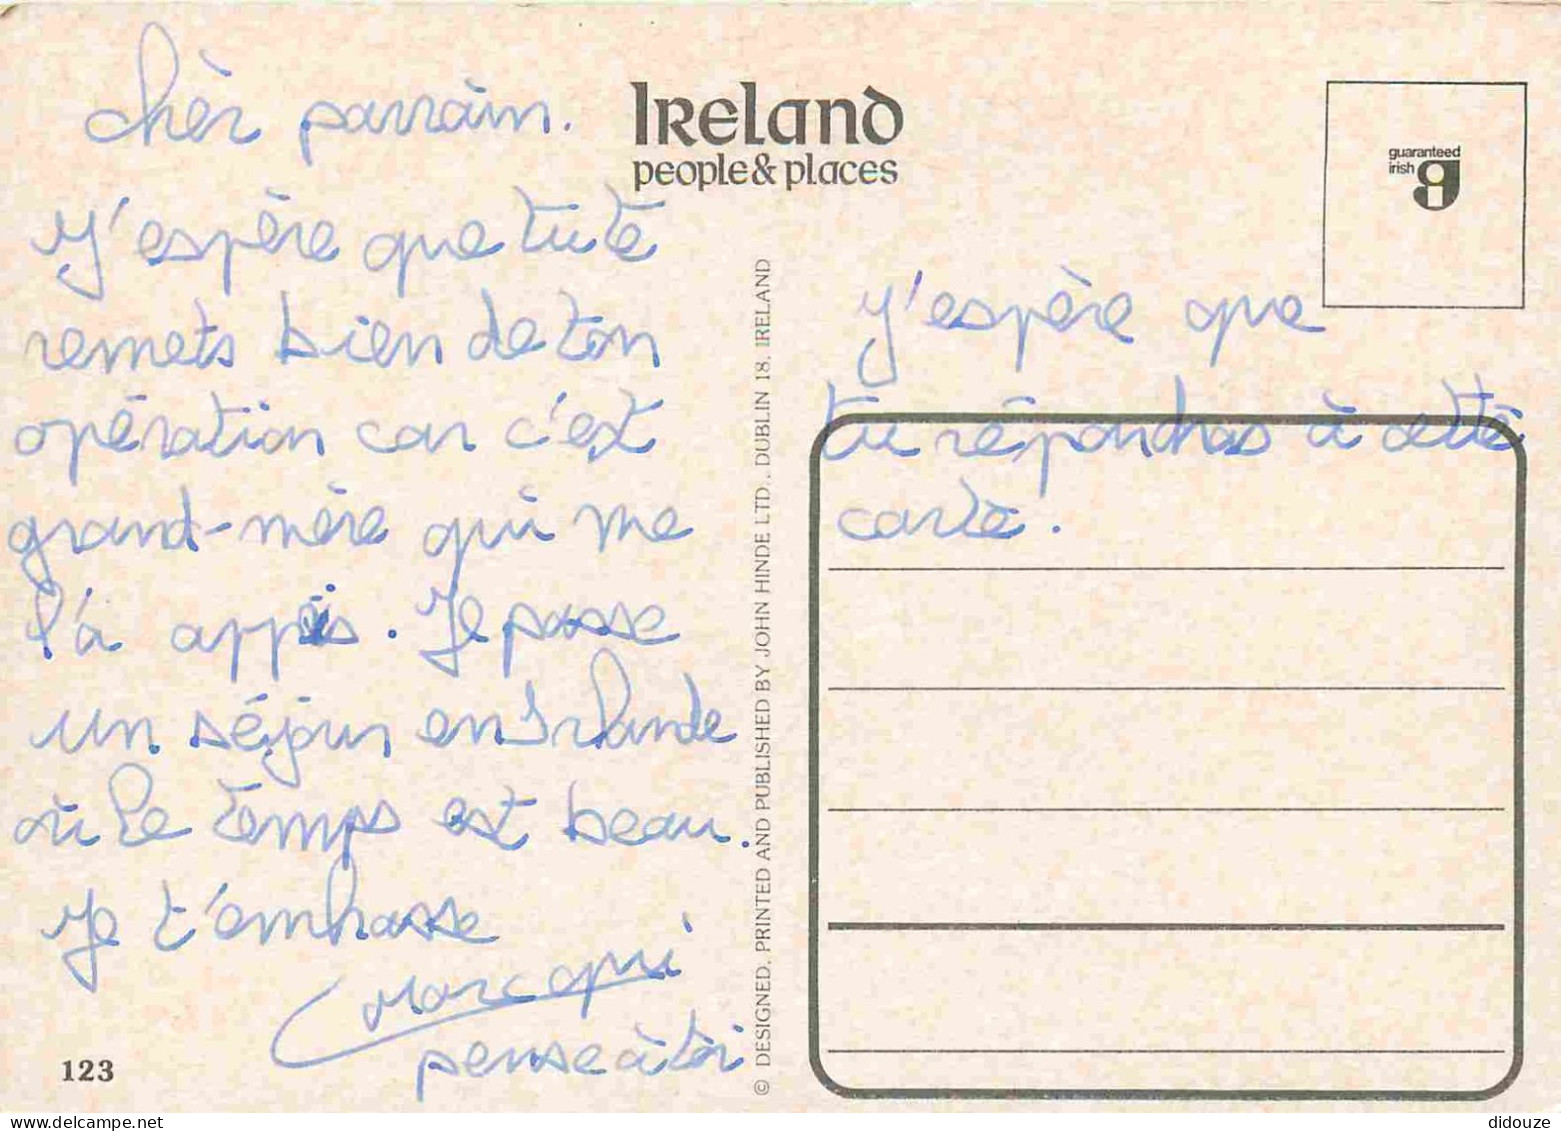 chèr parrain.
J'espère que tu te
remets bien de ton
opération car c'est
grand-mère qui me
l'a appris. Je passe
un séjour en Irlande
où le temps est beau.
Je t'embrasse
Marc qui
pense à toi
123
IRELAND
people & places
© DESIGNED, PRINTED AND PUBLISHED BY JOHN HINDE LTD., DUBLIN 18, IRELAND
guaranteed
irish
J'espère que
tu répondras à cette
carte.
delcampe.net
didouze